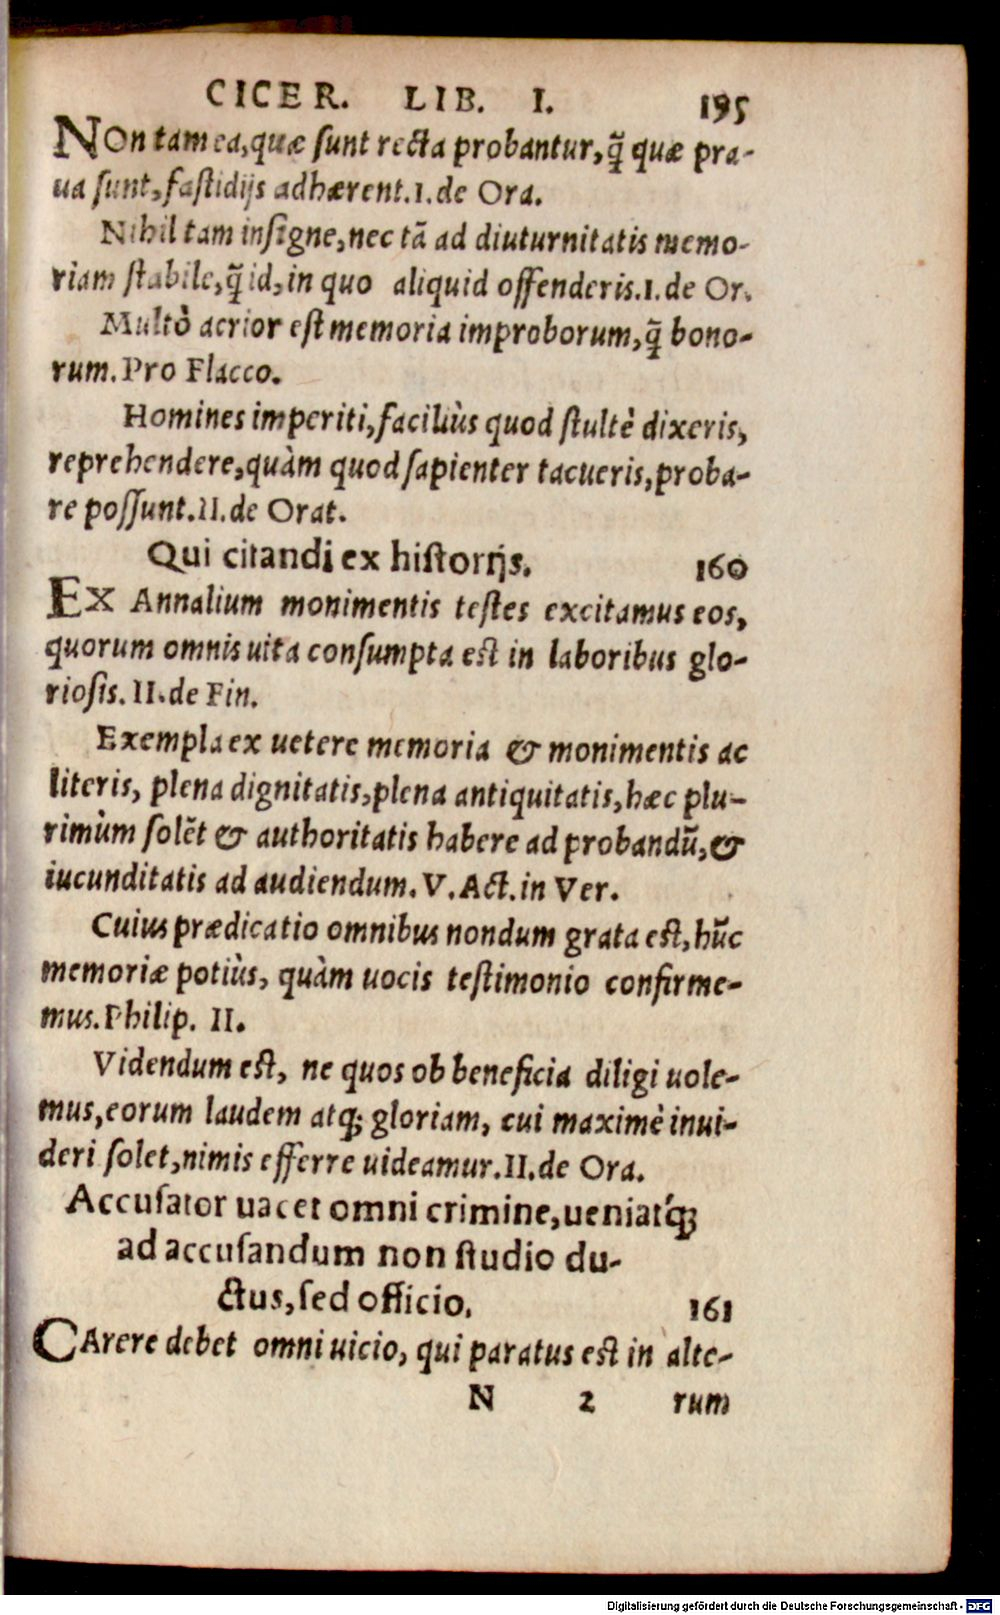 CICER. LIB. I. 195
NOn tam ea, quæ sunt recta probantur, q̃ quæ pra-
ua sunt, fastidijs adhærent. I. de Ora.
Nihil tam insigne, nec tã ad diuturnitatis memo-
riam stabile, q̃ id, in quo aliquid offenderis. I. de Or.
Multò acrior est memoria improborum, q̃ bono-
rum. Pro Flacco.
Homines imperiti, faciliùs quod stultè dixeris,
reprehendere, quàm quod sapienter tacueris, proba-
re possunt. II. de Orat.
Qui citandi ex historijs. 160
EX Annalium monimentis testes excitamus eos,
quorum omnis uita consumpta est in laboribus glo-
riosis. II. de Fin.
Exempla ex uetere memoria & monimentis ac
literis, plena dignitatis, plena antiquitatis, hæc plu-
rimùm solẽt & authoritatis habere ad probandũ, &
iucunditatis ad audiendum. V. Act. in Ver.
Cuius prædicatio omnibus nondum grata est, hũc
memoriæ potiùs, quàm uocis testimonio confirme-
mus. Philip. II.
Videndum est, ne quos ob beneficia diligi uole-
mus, eorum laudem atq; gloriam, cui maximè inui-
deri solet, nimis efferre uideamur. II. de Ora.
Accusator uacet omni crimine, ueniatq́;
ad accusandum non studio du-
ctus, sed officio. 161
CArere debet omni uicio, qui paratus est in alte-
N 2 rum
Digitalisierung gefördert durch die Deutsche Forschungsgemeinschaft - DFG